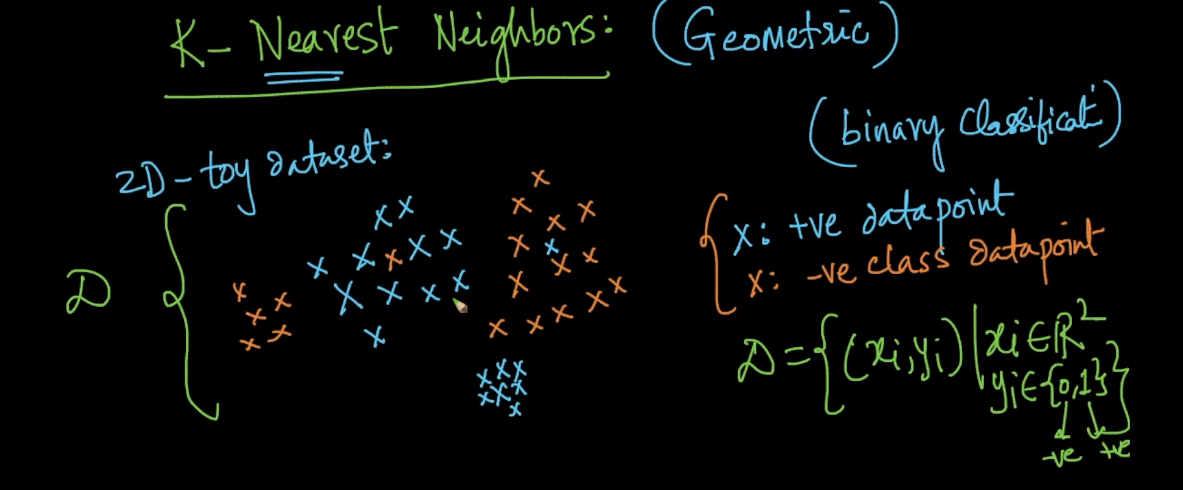 K- Nearest Neighbors: (Geometric)
(binary Classificatⁿ)
2D-toy dataset:
x: +ve datapoint
x: -ve class datapoint
D
D = {(xi, yi) | xi ∈ ℝ²
yi ∈ {0,1}}
-ve +ve